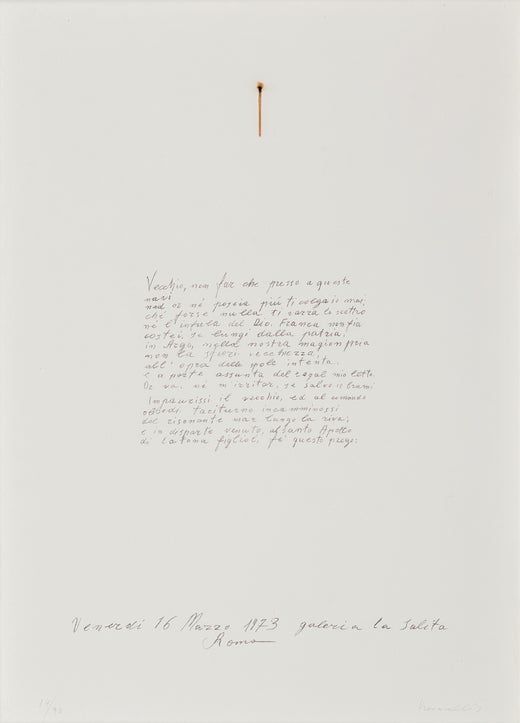 Vecchio, non far che presso a queste
navi
ned or nè poscia più ti colga io mai;
chè forse nulla ti varrà lo scettro
nè l'infula del Dio. Franca non fia
costei, se lungi dalla patria,
in Argo, nella nostra magion pria
non la sfiori vecchiezza,
all'opra delle spole intenta,
e a parte assunta del regal mio letto.
Or va, nè m'irritar, se salvo ir brami
Impaurissi il vecchio, ed al comando
obbedì taciturno incamminossi
del risonante mar lungo la riva;
e in disparte venuto, al santo Apollo
di Latona figliol, fe' questo prego:
Venerdì 16 Marzo 1973 galeria la Salita
Roma